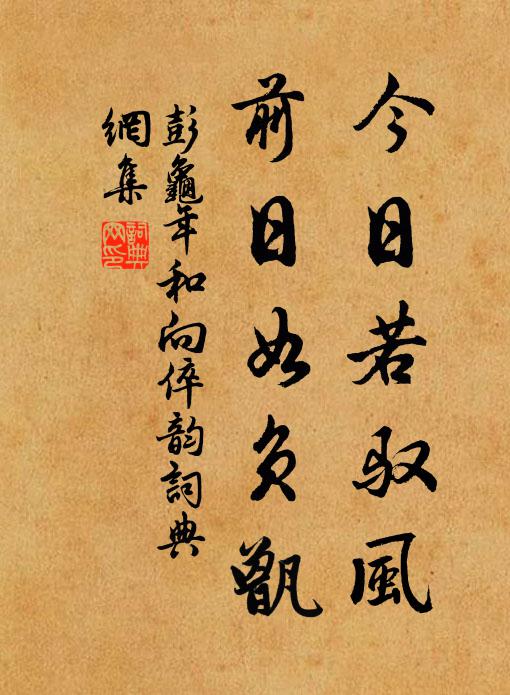 今日若驭風
前日如負甑
彭龜年和向倅韵詞典
網集
詞典
网印